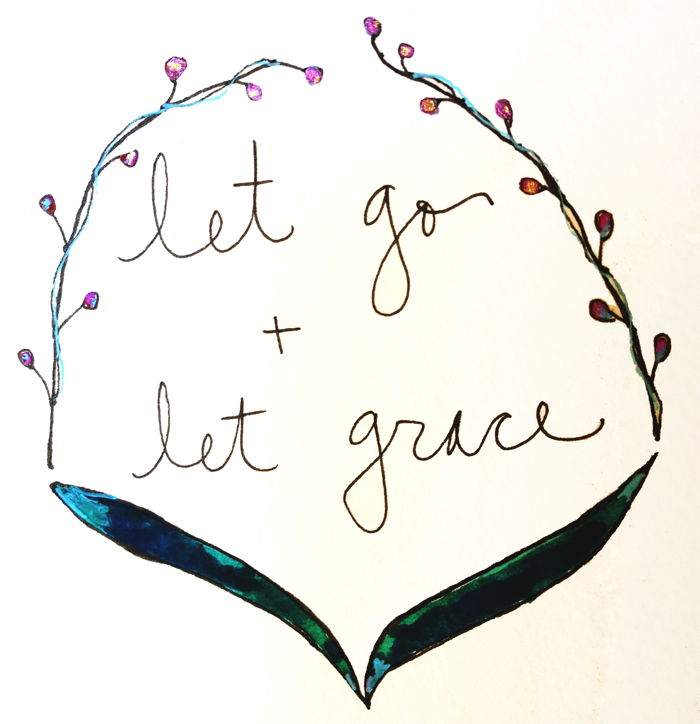 let go
+
let grace